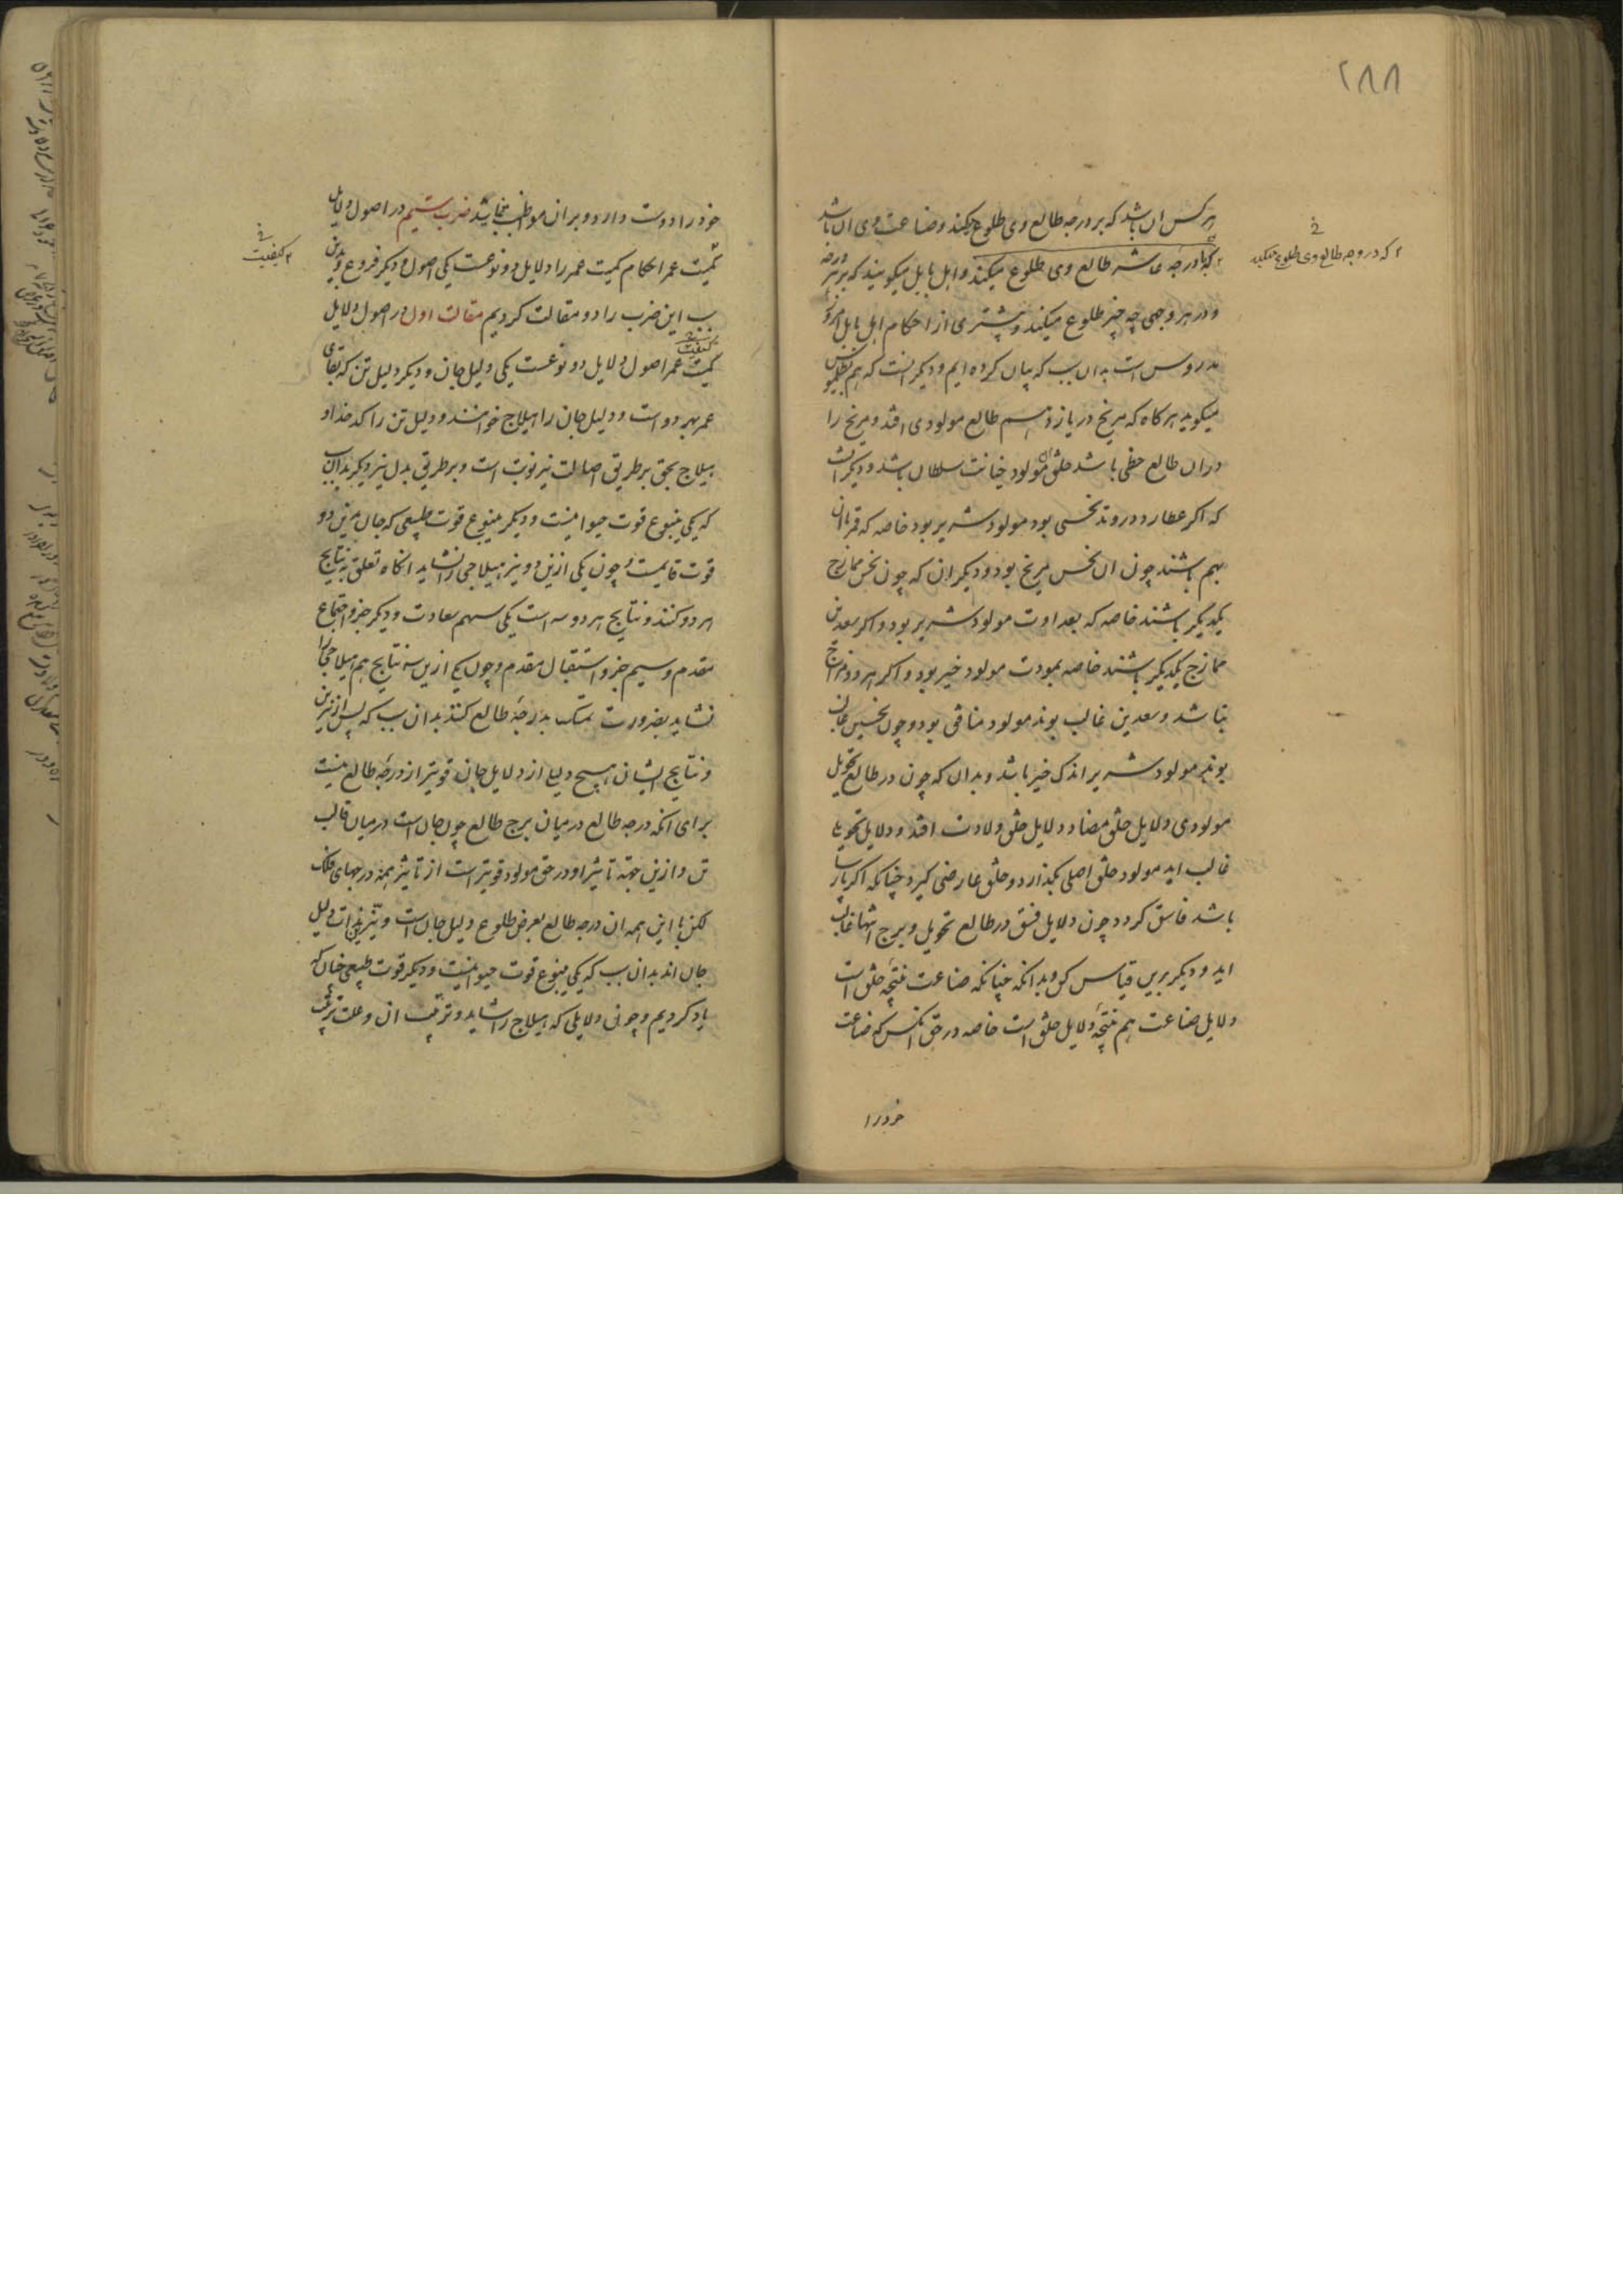 ۲۸۸
هر کس ان باشد که بر درجه طالع وی طلوع میکند و صناعت وی ان باشد
که با درجه عاشر طالع وی طلوع میکند و اهل بابل میکویند که بر هر درجه
و در هر وجهی چه چیز طلوع میکند و بیشتری از احکام اهل بابل امروز
مدروس است بدان سبب که بیان کرده ایم و دیکر انست که هم بطلمیوس
میکوید هر کاه که مریخ در یازدهم طالع مولودی افتد و مریخ را
دران طالع حظی باشد خلق مولود خیانت سلطان باشد و دیکر انست
که اکر عطارد در وتد نحسی بود مولود شریر بود خاصه که قمر با ان
بهم باشند چون ان نحس مریخ بود و دیکر ان که چون نحس ممازج
یکدیکر باشند خاصه که بعداوت مولود شریر بود و اکر سعدین
ممازج یکدیکر باشند خاصه بمودت مولود خیر بود و اکر هر دو ممازج
نباشد و سعدین غالب بوند مولود منافق بود و چون نحسین غالب
بوند مولود شریر اندک خیر باشد و بدان که چون در طالع تحویل
مولودی دلایل خلق مضاد دلایل خلق ولادت افتد و دلایل تحویل
غالب اید مولود خلق اصلی بکذارد و خلق عارضی کیرد چنانکه اکر پارسا
باشد فاسق کردد چون دلایل فسق در طالع تحویل و برج انتها غالب
اید و دیکر برین قیاس کن و بدانکه چنانکه صناعت نتیجه خلق است
دلایل صناعت هم نتیجه دلایل خلق است خاصه در حق انکس که صناعت
خود را
که در وجه طالع وی طلوع میکند
خود را دوست دارد و بران مواظب نماید ضرب ششم در اصول دلایل
کمیت عمر احکام کمیت عمر را دلایل دو نوعست یکی اصول و دیکر فروع و بدین
سبب این ضرب را دو مقالت کردیم مقالت اول در اصول دلایل
کمیت عمر اصول دلایل دو نوعست یکی دلیل جان و دیکر دلیل تن که بقای
عمر بهر دو است و دلیل جان را هیلاج خوانند و دلیل تن را کدخداه
هیلاج بحق بر طریق اصالت نیر نوبت است و بر طریق بدل نیر دیکر بدان سبب
که یکی ینبوع قوت حیوانیست و دیکر ینبوع قوت طبیعی که جان بدین دو
قوت قایمست و چون یکی ازین دو نیر هیلاجی را نشاید انکاه تعلق به نتایج
هر دو کنند و نتایج هر دو سه است یکی سهم سعادت و دیکر جزو اجتماع
مقدم و سیم جزو استقبال مقدم و چون یکی ازین سه نتایج هم هیلاجی را
نشاید بضرورت تمسک بدرجه طالع کنند بدان سبب که پس از نیرین
و نتایج ایشان هیچ دلیلی از دلایل جان قویتر از درجه طالع نیست
برای انکه درجه طالع در میان برج طالع چون جان است در میان قالب
تن و ازین جهة تاثیر او در حق مولود قویتر است از تاثیر همه درجهای فلک
لکن با این همه ان درجه طالع بعرض طلوع دلیل جان است و نیرین بذات دلیل
جان اند بدان سبب که یکی ینبوع قوت حیوانیست و دیکر قوت طبیعی چنان که
یاد کردیم و چونی دلایلی که هیلاج را شاید و ترتیب ان و علت ترتیب
کیفیت
کیفیت